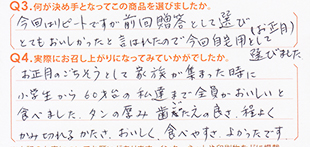 Q3.何が決め手となってこの商品を選びましたか。
今回はリピートですが前回贈答として選び
とてもおいしかったと言はれたので今回自宅用として(お正月)
選びました
Q4.実際にお召し上がりになってみていかがでしたか。
お正月のごちそうとして家族が集まった時に
小学生から60才台の私達まで全員がおいしいと
食べました。タンの厚み歯ごたえの良さ、程よく
かみ切れるかたさ、おいしく、食べやすさ、よかったです。